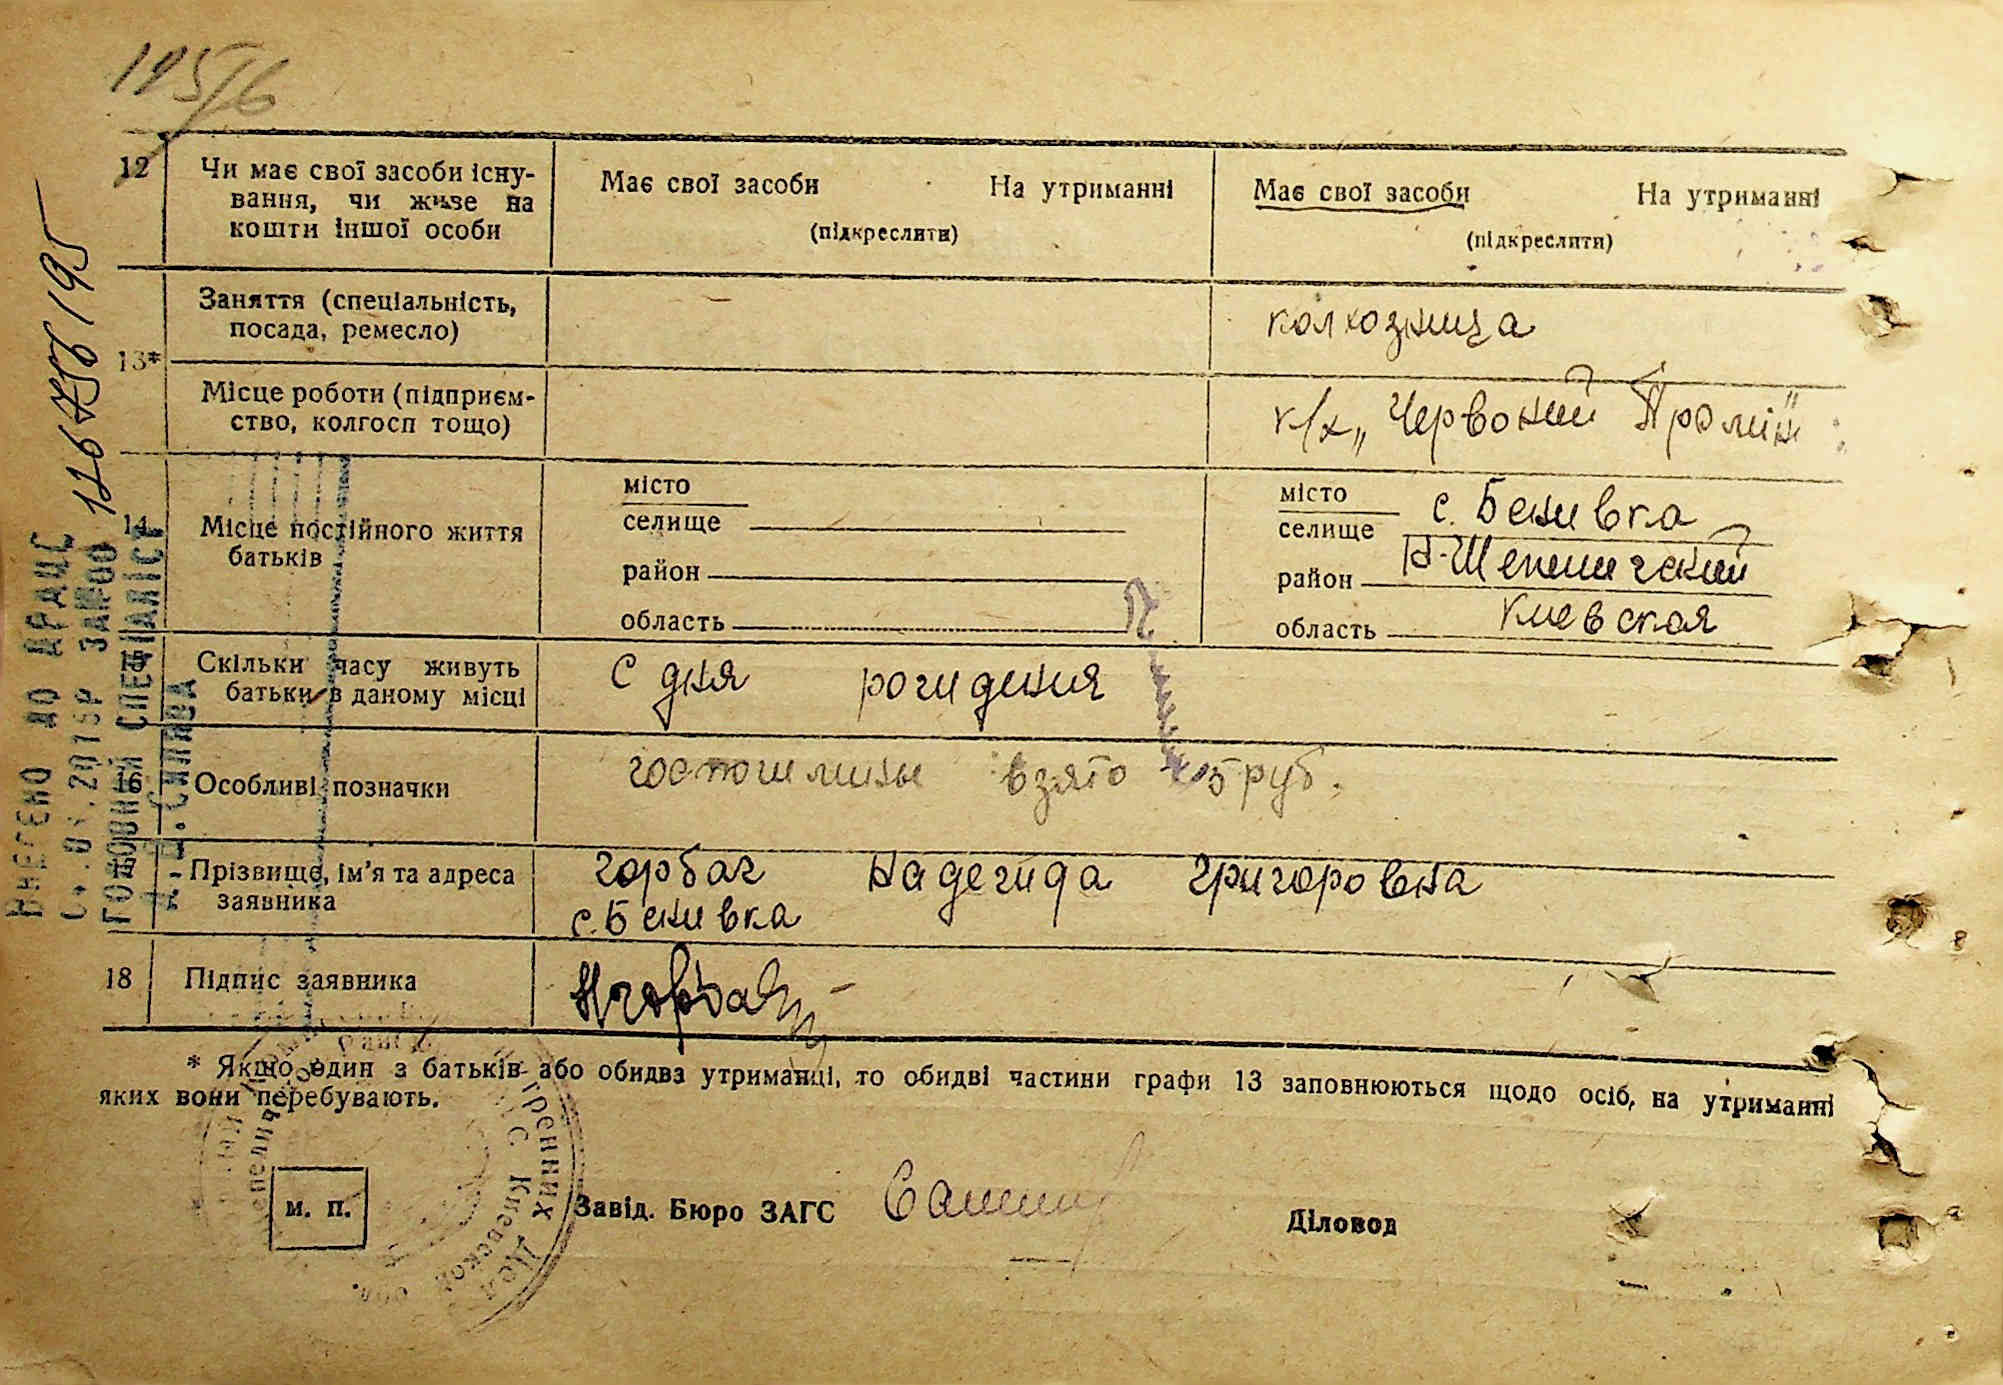 195/6
12
Чи має свої засоби існу-
вання, чи живе на
кошти іншої особи
Має свої засоби На утриманні
(підкреслити)
Має свої засоби На утриманні
(підкреслити)
13*
Заняття (спеціальність,
посада, ремесло)
колхозница
Місце роботи (підприєм-
ство, колгосп тощо)
к/х „Червоний Промінь"
14
Місце постійного життя
батьків
місто
селище
район
область
місто
селище с. Бенивка
район Н-Шепеличский
область Киевская
Скільки часу живуть
батьки в даному місці
С дня рождения
16
Особливі позначки
госпошлины взято 5 руб.
17
Прізвище, ім'я та адреса
заявника
Горбач Надежда Григоровна
с. Бенивка
18
Підпис заявника
НГорбач
* Якщо один з батьків або обидва утриманці, то обидві частини графи 13 заповнюються щодо осіб, на утриманні
яких вони перебувають.
м. п.
Завід. Бюро ЗАГС
Діловод
ВНЕСЕНО ДО ДРАЦС
ГОЛОВНИЙ СПЕЦІАЛІСТ